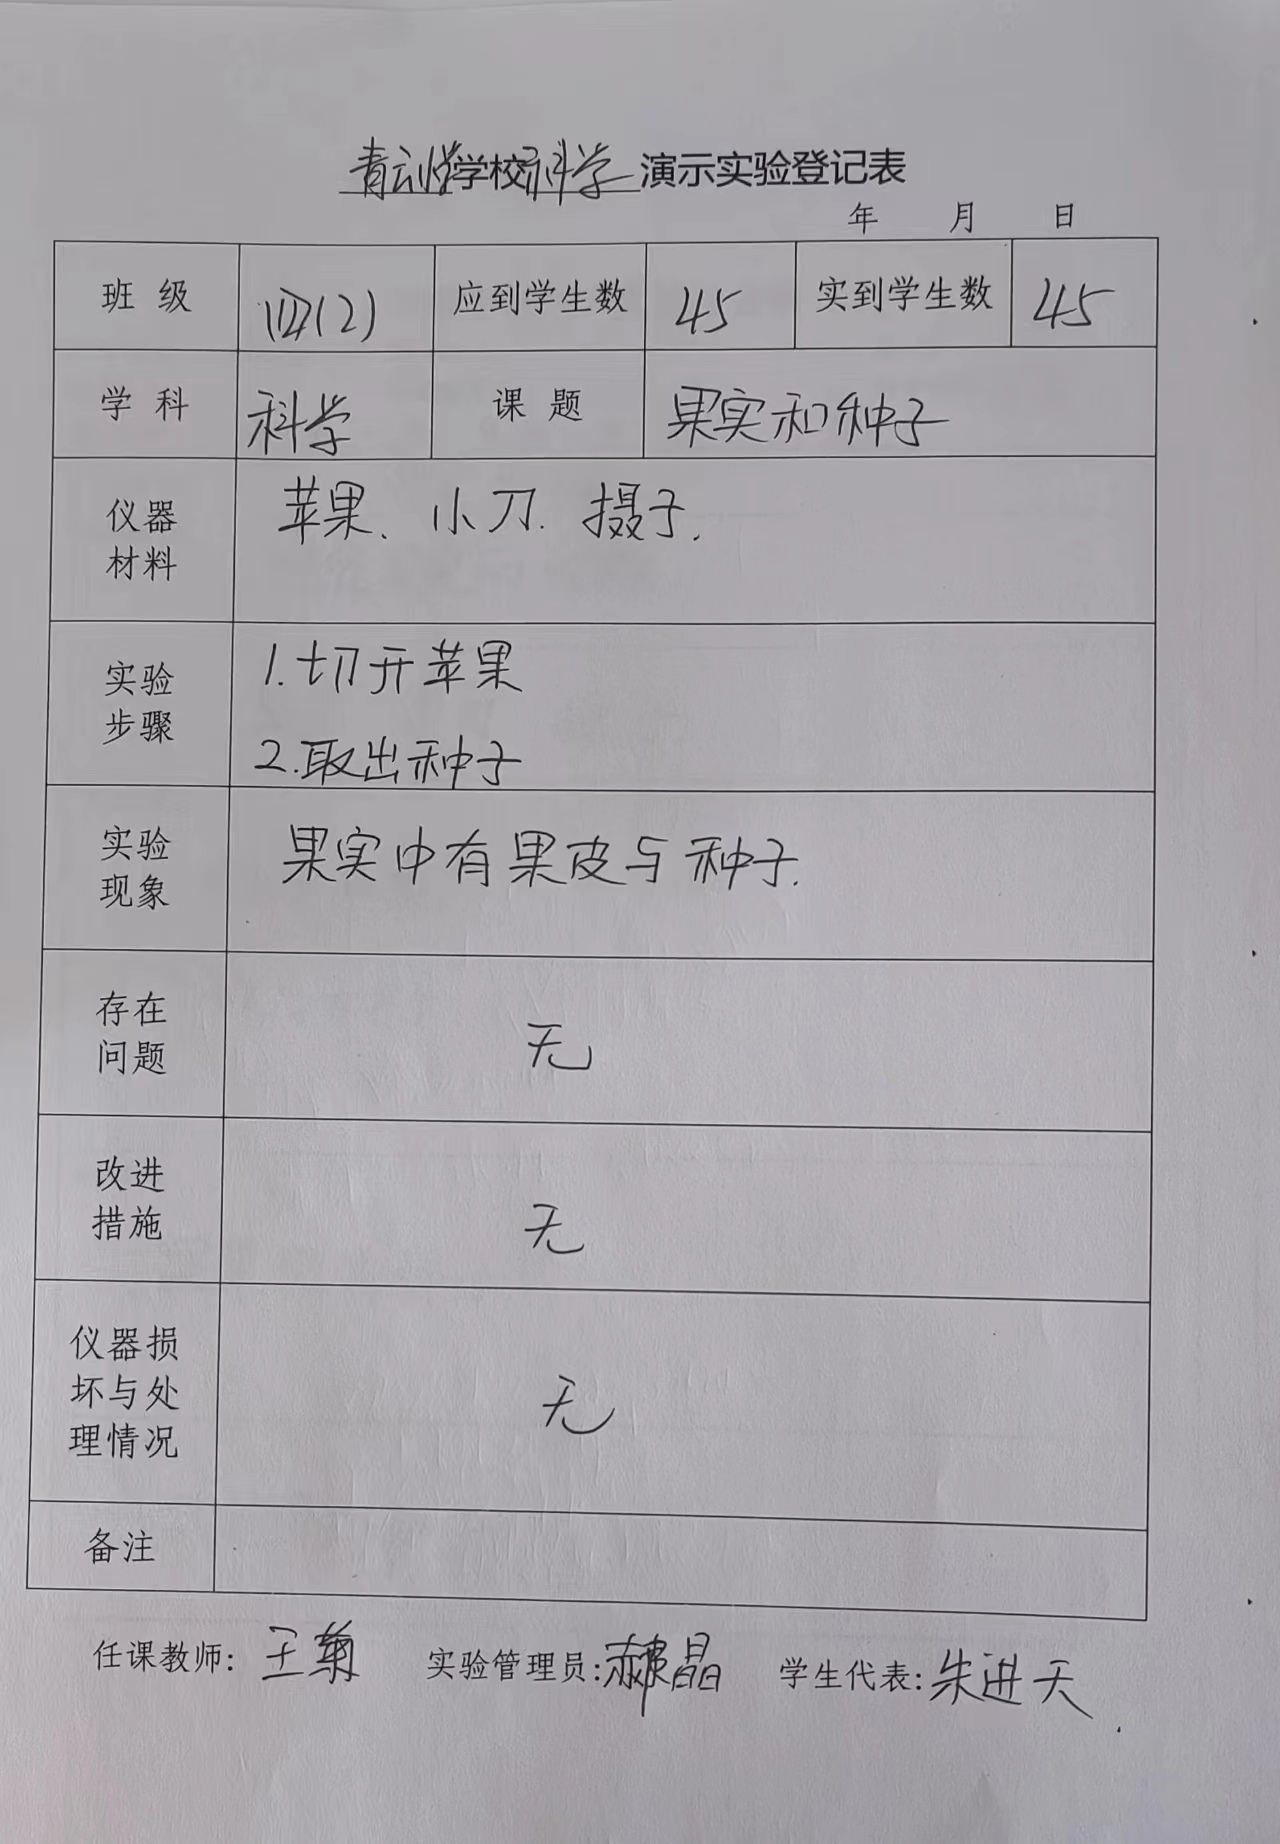 青云学校科学演示实验登记表
年 月 日
班 级 四(2) 应到学生数 45 实到学生数 45
学 科 科学 课 题 果实和种子
仪器
材料
苹果、小刀. 摄子.
实验
步骤
1.切开苹果
2.取出种子
实验
现象
果实中有果皮与种子.
存在
问题
无
改进
措施
无
仪器损
坏与处
理情况
无
备注
任课教师: 王菊 实验管理员: 郝晶 学生代表: 朱进天